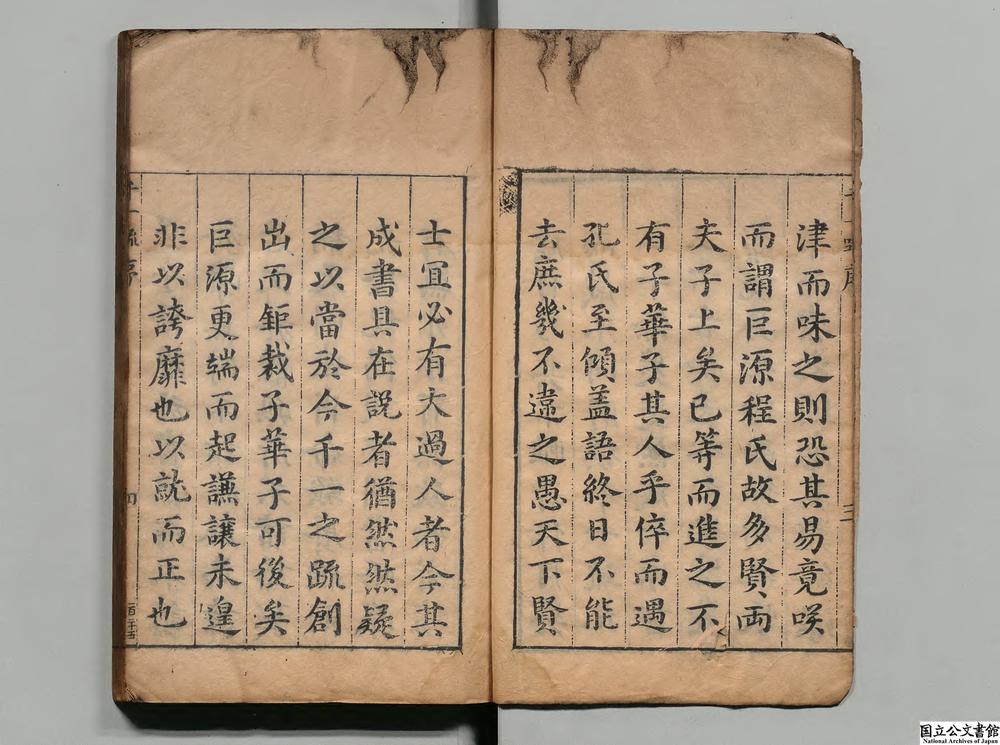 津而味之則恐其易竟咲
而謂巨源程氏故多賢両
夫子上矣已等而進之不
有子華子其人乎倅而遇
孔氏至傾盖語終日不能
去庶幾不違之愚天下賢
士冝必有大過人者今其
成書具在説者猶然然疑
之以當於今千一之疏創
出而鉅裁子華子可後矣
巨源更端而起謙讓未遑
非以誇靡也以就而正也
千一疏序
四
国立公文書館
National Archives of Japan